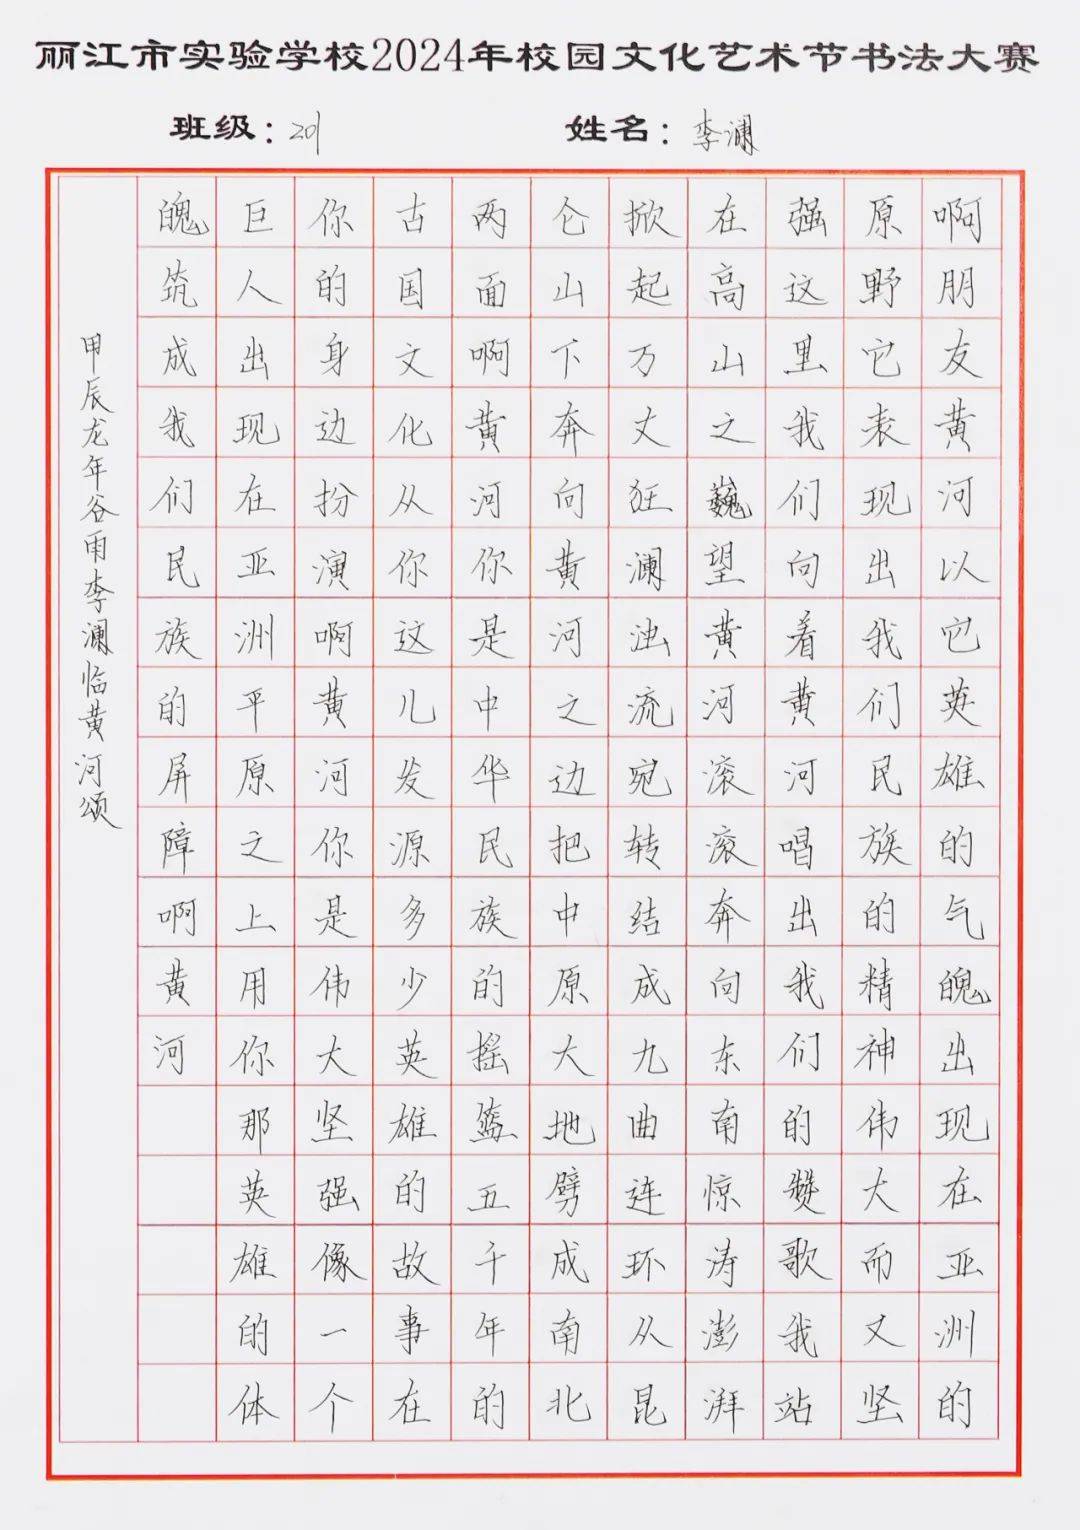 丽江市实验学校2024年校园文化艺术节书法大赛
班级：201
姓名：李澜
啊朋友黄河以它英雄的气魄出现在亚洲的
原野它表现出我们民族的精神伟大而又坚
强这里我们向着黄河唱出我们的赞歌我站
在高山之巍望黄河滚滚奔向东南惊涛澎湃
掀起万丈狂澜浊流宛转结成九曲连环从昆
仑山下奔向黄河之边把中原大地劈成南北
两面啊黄河你是中华民族的摇篮五千年的
古国文化从你这儿发源多少英雄的故事在
你的身边扮演啊黄河你是伟大坚强像一个
巨人出现在亚洲平原之上用你那英雄的体
魄筑成我们民族的屏障啊黄河
甲辰龙年谷雨李澜临黄河颂